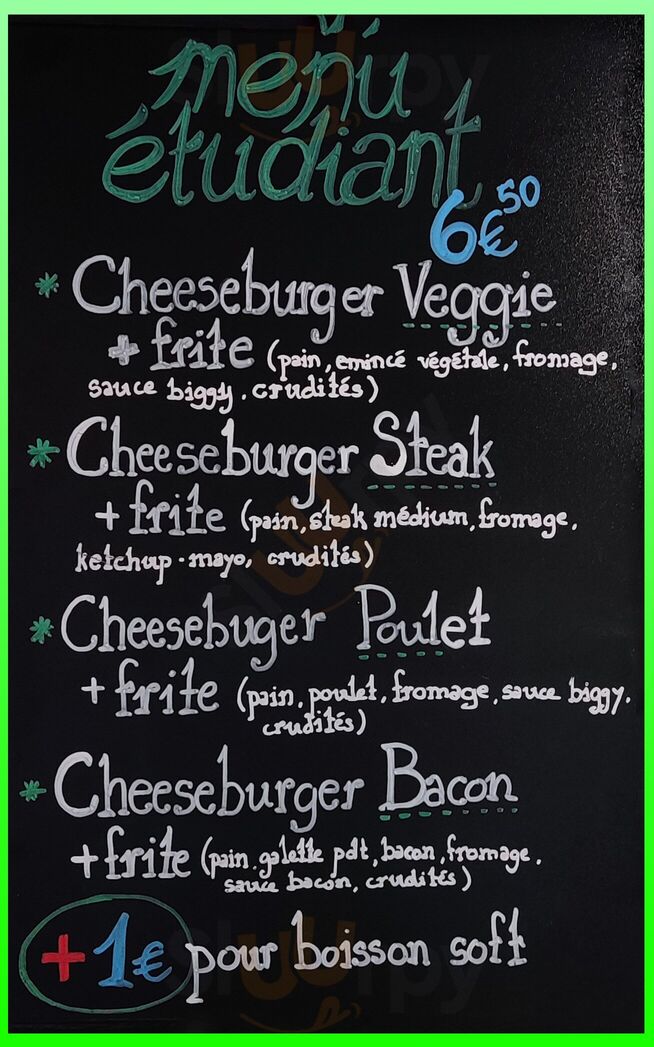 menu
étudiant
6€50
* Cheeseburger Veggie
+ frite (pain, emincé végétale, fromage,
sauce biggy, crudités)
* Cheeseburger Steak
+ frite (pain, steak médium, fromage,
ketchup-mayo, crudités)
* Cheesebuger Poulet
+ frite (pain, poulet, fromage, sauce biggy,
crudités)
* Cheeseburger Bacon
+ frite (pain, galette pdt, bacon, fromage,
sauce bacon, crudités)
+1€ pour boisson soft